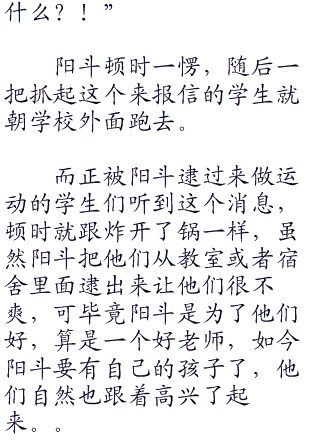 什么？！”
阳斗顿时一愣，随后一
把抓起这个来报信的学生就
朝学校外面跑去。
而正被阳斗逮过来做运
动的学生们听到这个消息，
顿时就跟炸开了锅一样，虽
然阳斗把他们从教室或者宿
舍里面逮出来让他们很不
爽，可毕竟阳斗是为了他们
好，算是一个好老师，如今
阳斗要有自己的孩子了，他
们自然也跟着高兴了起
来。。